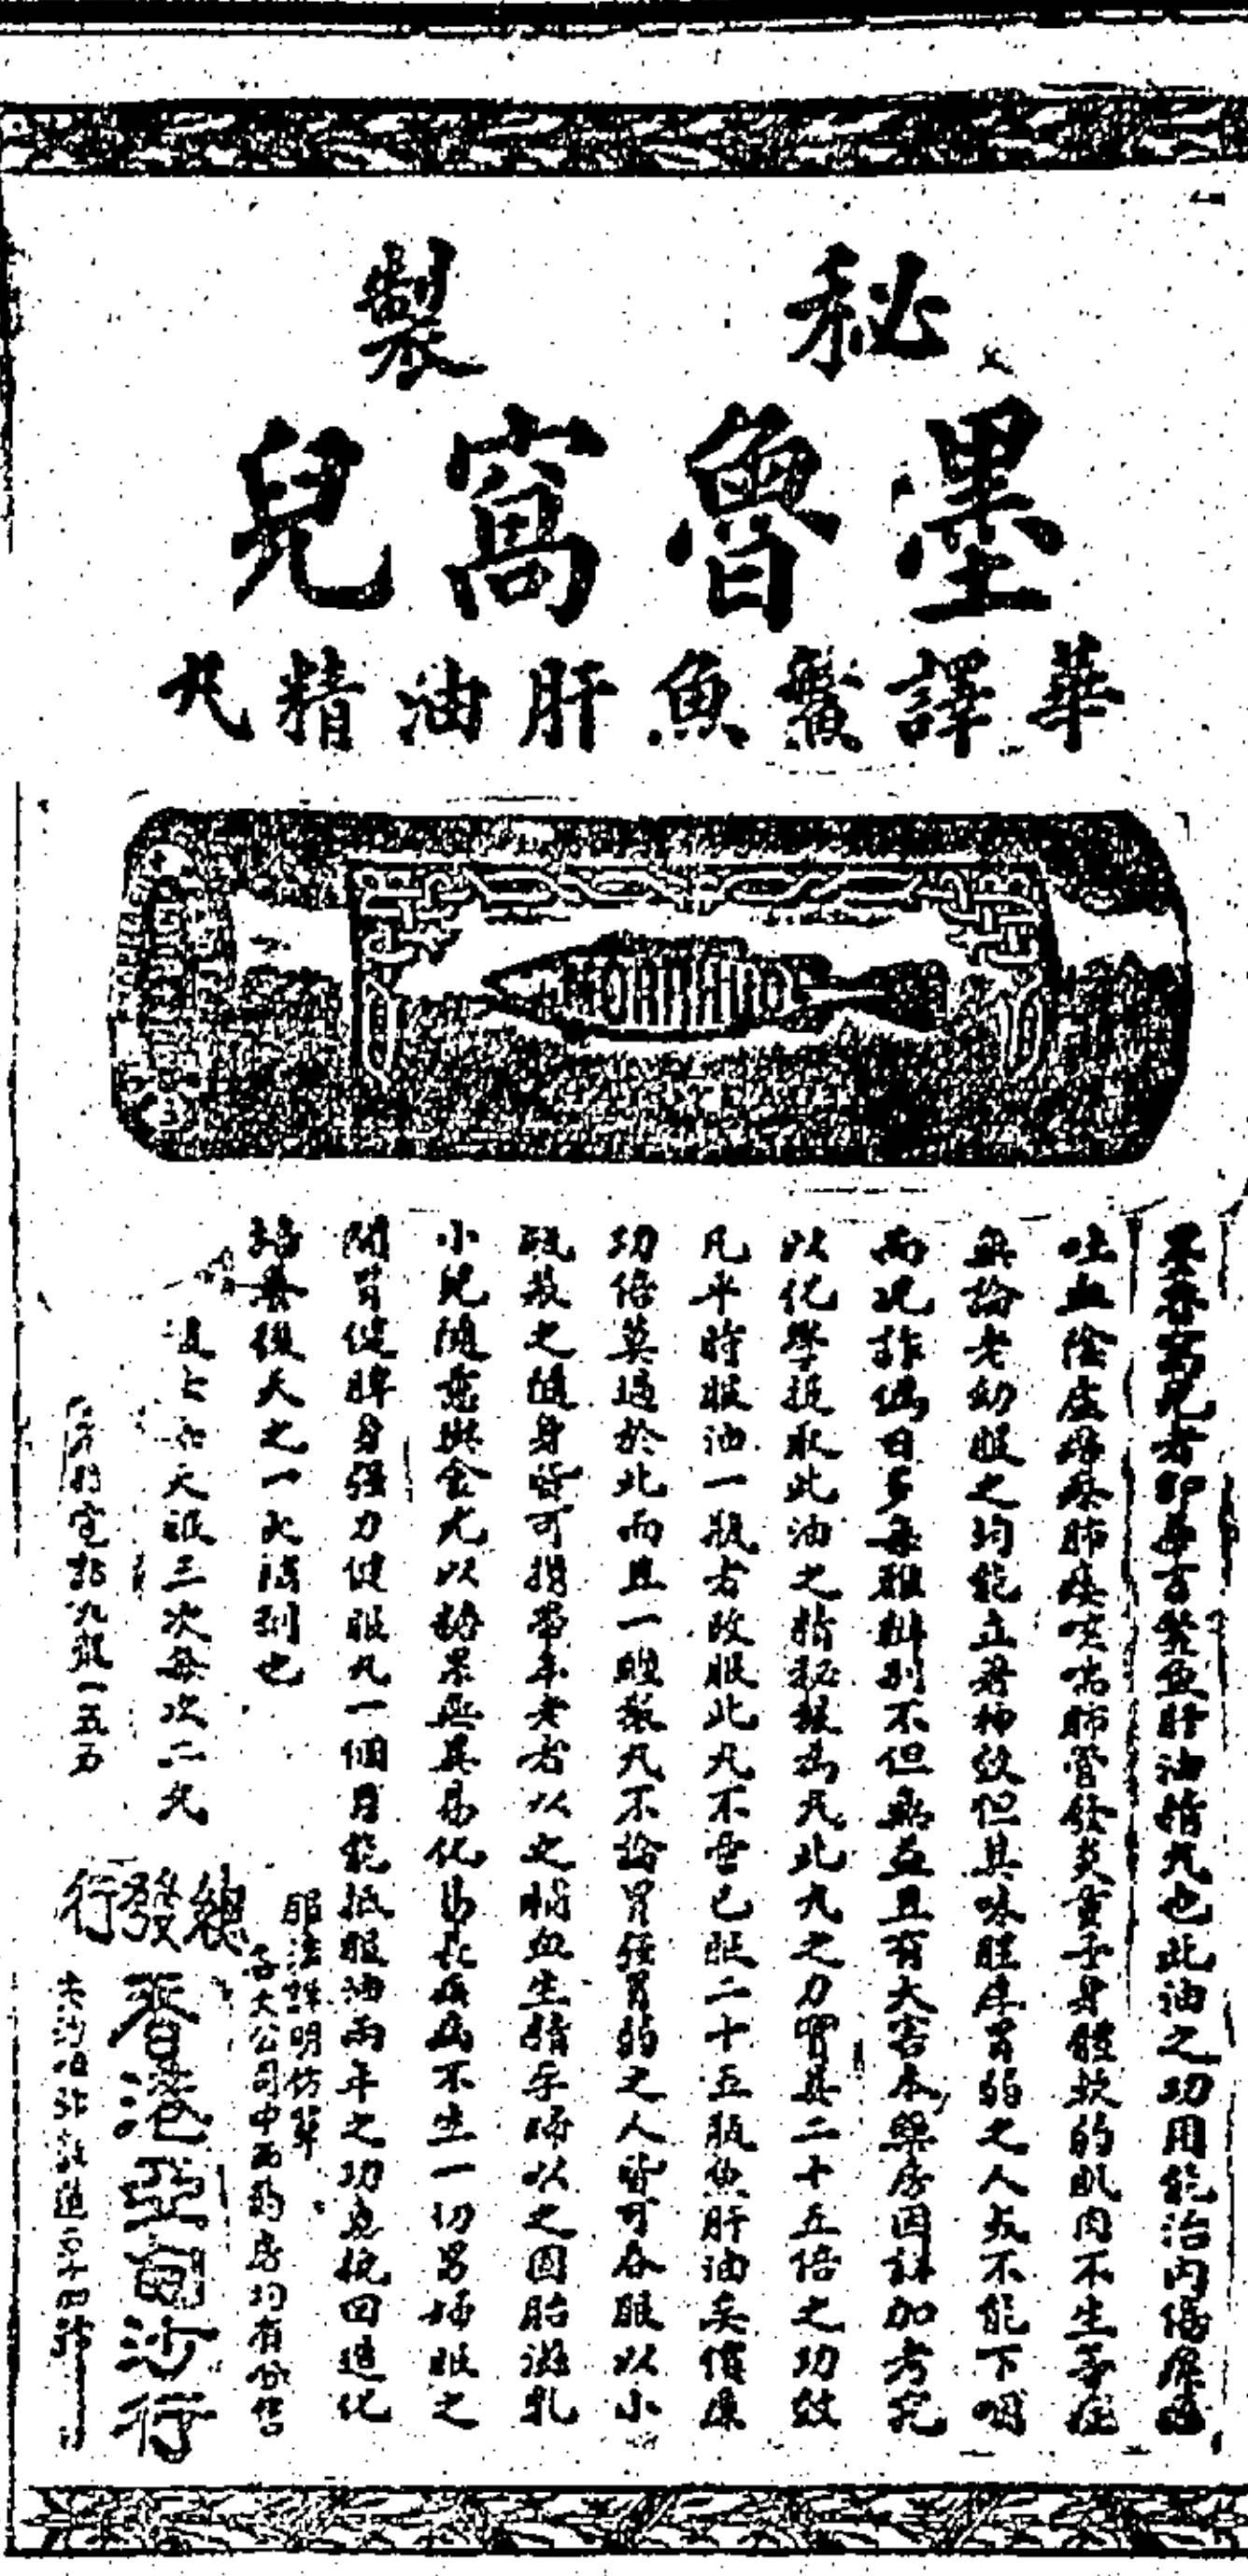 秘製
墨魯窩兒
華譯鱉魚肝油精丸
MORRHUOL
墨魯窩兒者即華言鱉魚肝油精丸也此油之功用能治內傷療
吐血陰虛癆瘵肺痿哮喘肺管發炎童子身體軟弱肌肉不生等症
無論老幼服之均能立著神效但其味腥厚胃弱之人或不能下咽
而況詐偽日多每難辨別不但無益且有大害本藥房因詳加考究
以化學提取此油之精秘製為丸此丸之力實具二十五倍之功效
凡平時服油一瓶者改服此丸不啻已服二十五瓶魚肝油矣價廉
功倍莫過於此而且一經製丸不論胃強胃弱之人皆可吞服以小
瓶裝之隨身皆可攜帶年老者以之補血生精孕婦以之固胎滋乳
小兒隨意與食尤以糖果無異易化易長疾病不生一切男婦服之
開胃健脾身強力健服丸一個月能抵服油兩年之功克挽回造化
培養後天之一大法則也
大服三次每次二丸
服法詳明仿單
各大公司中西藥房均有分售
總發行
香港亞細沙行